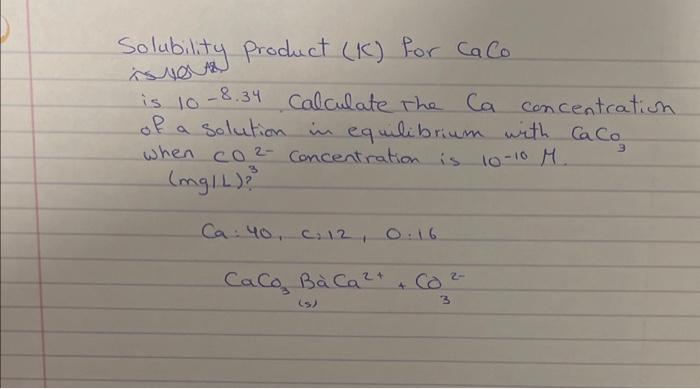 Solubility product (K) for CaCo
is 10^-8.34 Calculate the Ca concentration
of a solution in equilibrium with CaCo₃
when CO₃²⁻ concentration is 10^-10 M.
(mg/L)?
Ca: 40, C:12, O:16
CaCO₃(s) Bà Ca²⁺ + CO₃²⁻